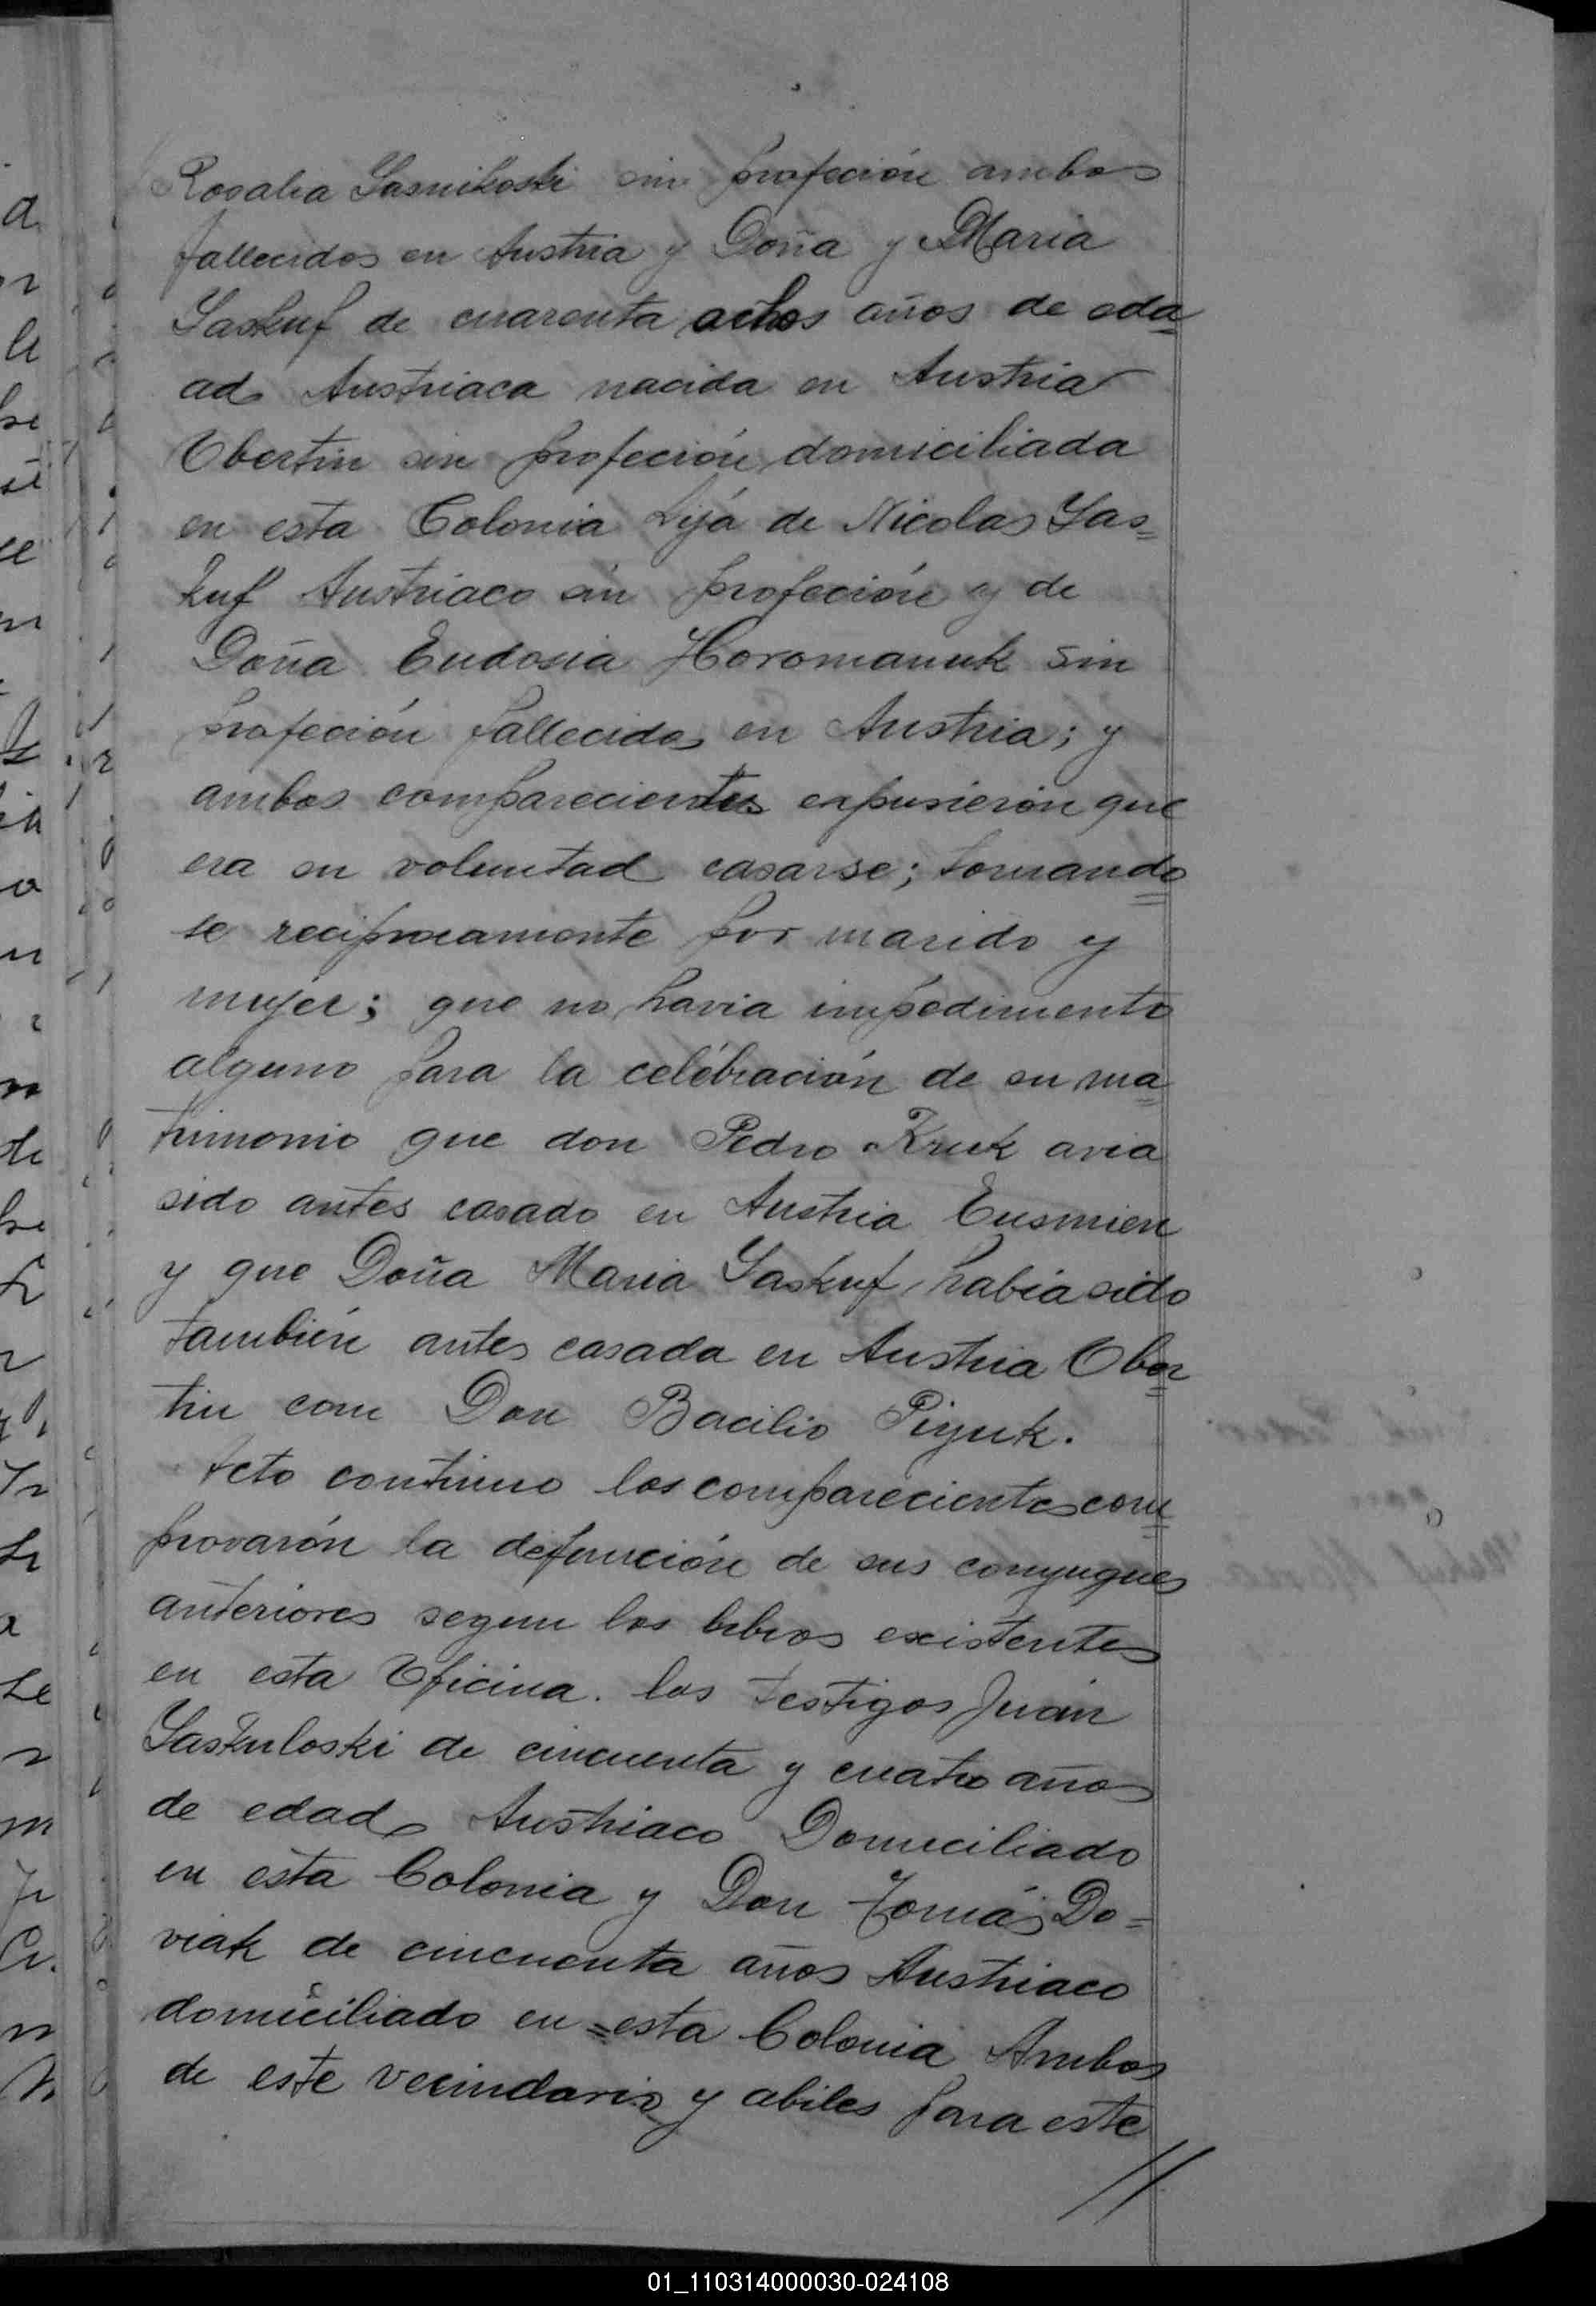 Rosalia Sasnikoski sin profeción ambos
fallecidos en Austria y Doña y Maria
Saskuf de cuarenta achos años de eda=
ad Austriaca nacida en Austria
Obertin sin profeción domiciliada
en esta Colonia hija de Nicolas Sas=
kuf Austriaco sin profeción y de
Doña Eudosia Horomanuk sin
profeción fallecidos en Austria; y
ambos comparecientes expusierón que
era su voluntad casarse; tomando=
se reciprocamente por marido y
mujer; que no havia impedimento
alguno para la celébración de su ma=
trimonio que don Pedro Kruk avia
sido antes casado en Austria Eusmien
y que Doña Maria Saskuf habia sido
tambien antes casada en Austria Ober=
tin com Don Bacilio Piyuk.
Acto continuo los comparecientes com=
provarón la defunción de sus conyugues
anteriores segun los libros existentes
en esta Oficina. los testigos Juan
Saskuloski de cincuenta y cuatro años
de edad Austriaco Domiciliado
en esta Colonia y Don Tomás Do=
viak de cincuenta años Austriaco
domiciliado en =esta Colonia Ambos
de este vecindario y abiles para este
//
01_110314000030-024108